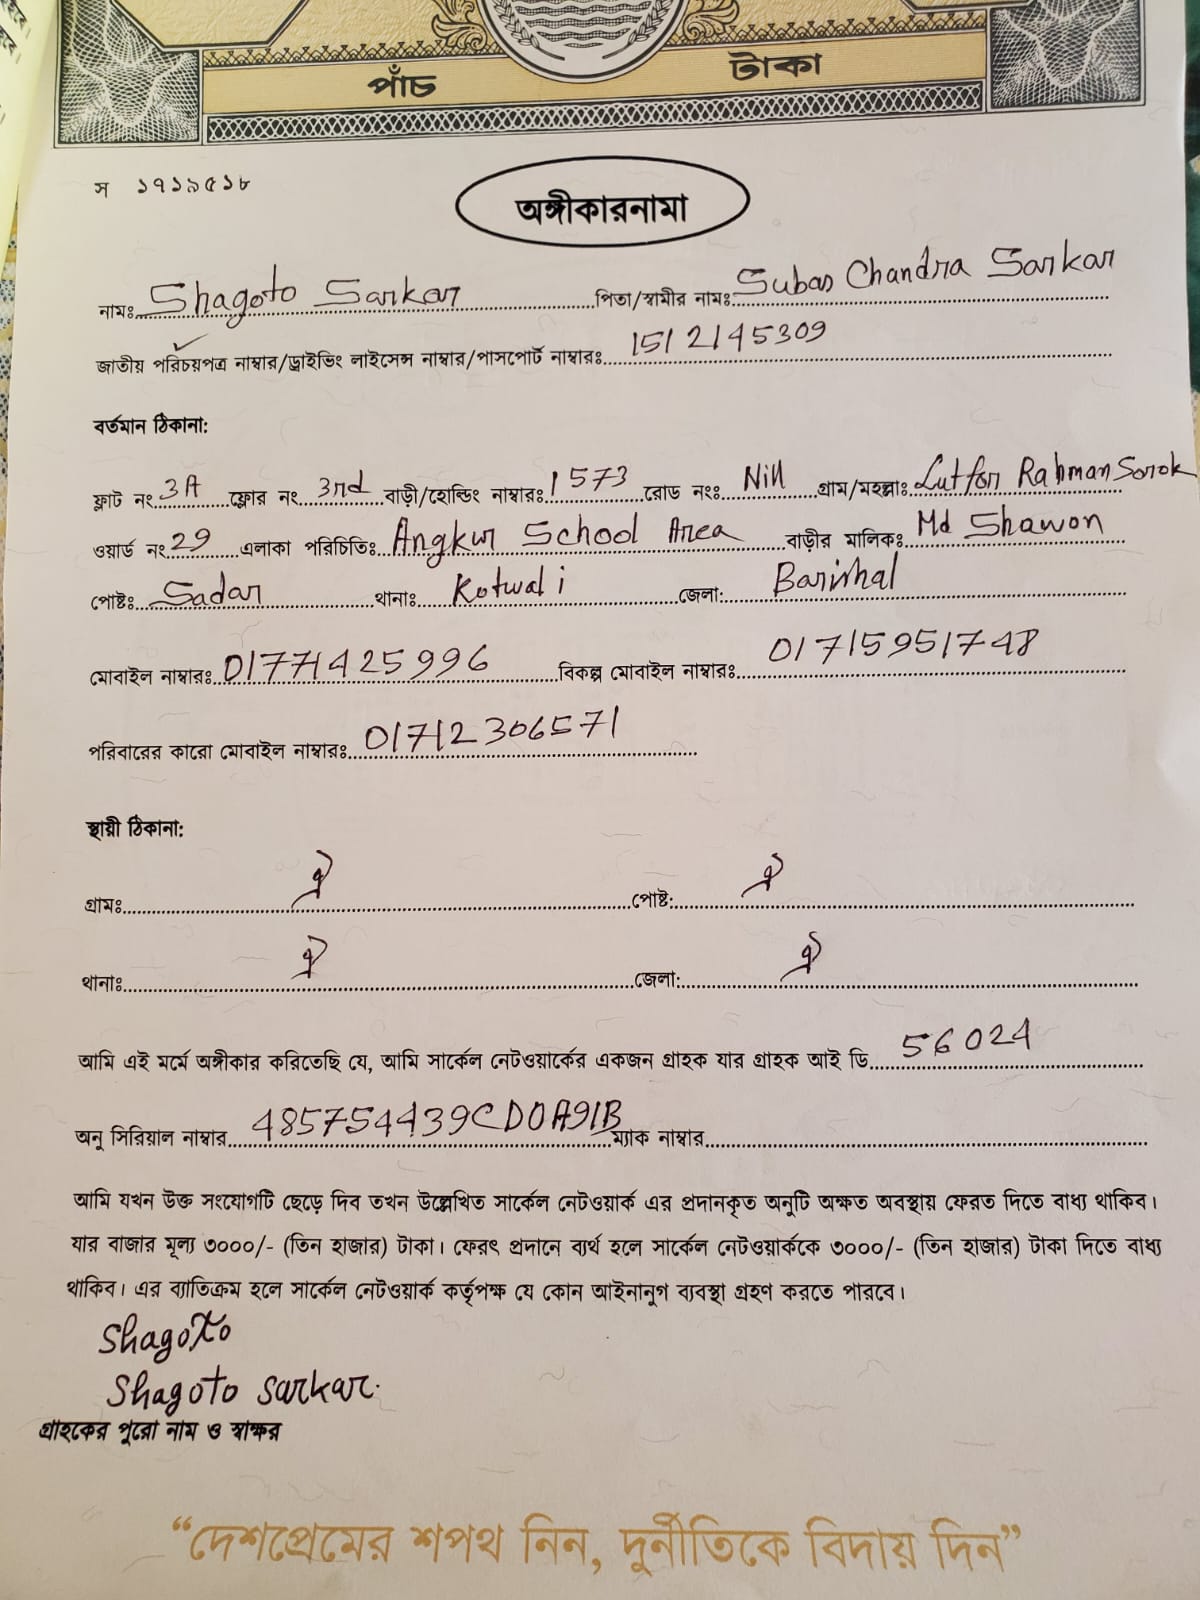 পাঁচ টাকা
স ১৭১৯৫১৮
অঙ্গীকারনামা
নামঃ Shagoto Sarkar পিতা/স্বামীর নামঃ Subas Chandra Sarkar
জাতীয় পরিচয়পত্র নাম্বার/ড্রাইভিং লাইসেন্স নাম্বার/পাসপোর্ট নাম্বারঃ 1512145309
বর্তমান ঠিকানা:
ফ্লাট নং 3A ফ্লোর নং 3rd বাড়ী/হোল্ডিং নাম্বারঃ 1573 রোড নংঃ Nill গ্রাম/মহল্লাঃ Lutfor Rahman Sorok
ওয়ার্ড নং 29 এলাকা পরিচিতিঃ Angkur School Area বাড়ীর মালিকঃ Md Shawon
পোষ্টঃ Sadar থানাঃ Kotwali জেলা: Barishal
মোবাইল নাম্বারঃ 01771425996 বিকল্প মোবাইল নাম্বারঃ 01715951748
পরিবারের কারো মোবাইল নাম্বারঃ 01712306571
স্থায়ী ঠিকানা:
গ্রামঃ ঐ পোষ্ট: ঐ
থানাঃ ঐ জেলা: ঐ
আমি এই মর্মে অঙ্গীকার করিতেছি যে, আমি সার্কেল নেটওয়ার্কের একজন গ্রাহক যার গ্রাহক আই ডি 56024
অনু সিরিয়াল নাম্বার 485754439CD0A91B ম্যাক নাম্বার
আমি যখন উক্ত সংযোগটি ছেড়ে দিব তখন উল্লেখিত সার্কেল নেটওয়ার্ক এর প্রদানকৃত অনুটি অক্ষত অবস্থায় ফেরত দিতে বাধ্য থাকিব।
যার বাজার মূল্য ৩০০০/- (তিন হাজার) টাকা। ফেরৎ প্রদানে ব্যর্থ হলে সার্কেল নেটওয়ার্ককে ৩০০০/- (তিন হাজার) টাকা দিতে বাধ্য
থাকিব। এর ব্যাতিক্রম হলে সার্কেল নেটওয়ার্ক কর্তৃপক্ষ যে কোন আইনানুগ ব্যবস্থা গ্রহণ করতে পারবে।
Shagoto
Shagoto sarkar.
গ্রাহকের পুরো নাম ও স্বাক্ষর
“দেশপ্রেমের শপথ নিন, দুর্নীতিকে বিদায় দিন”